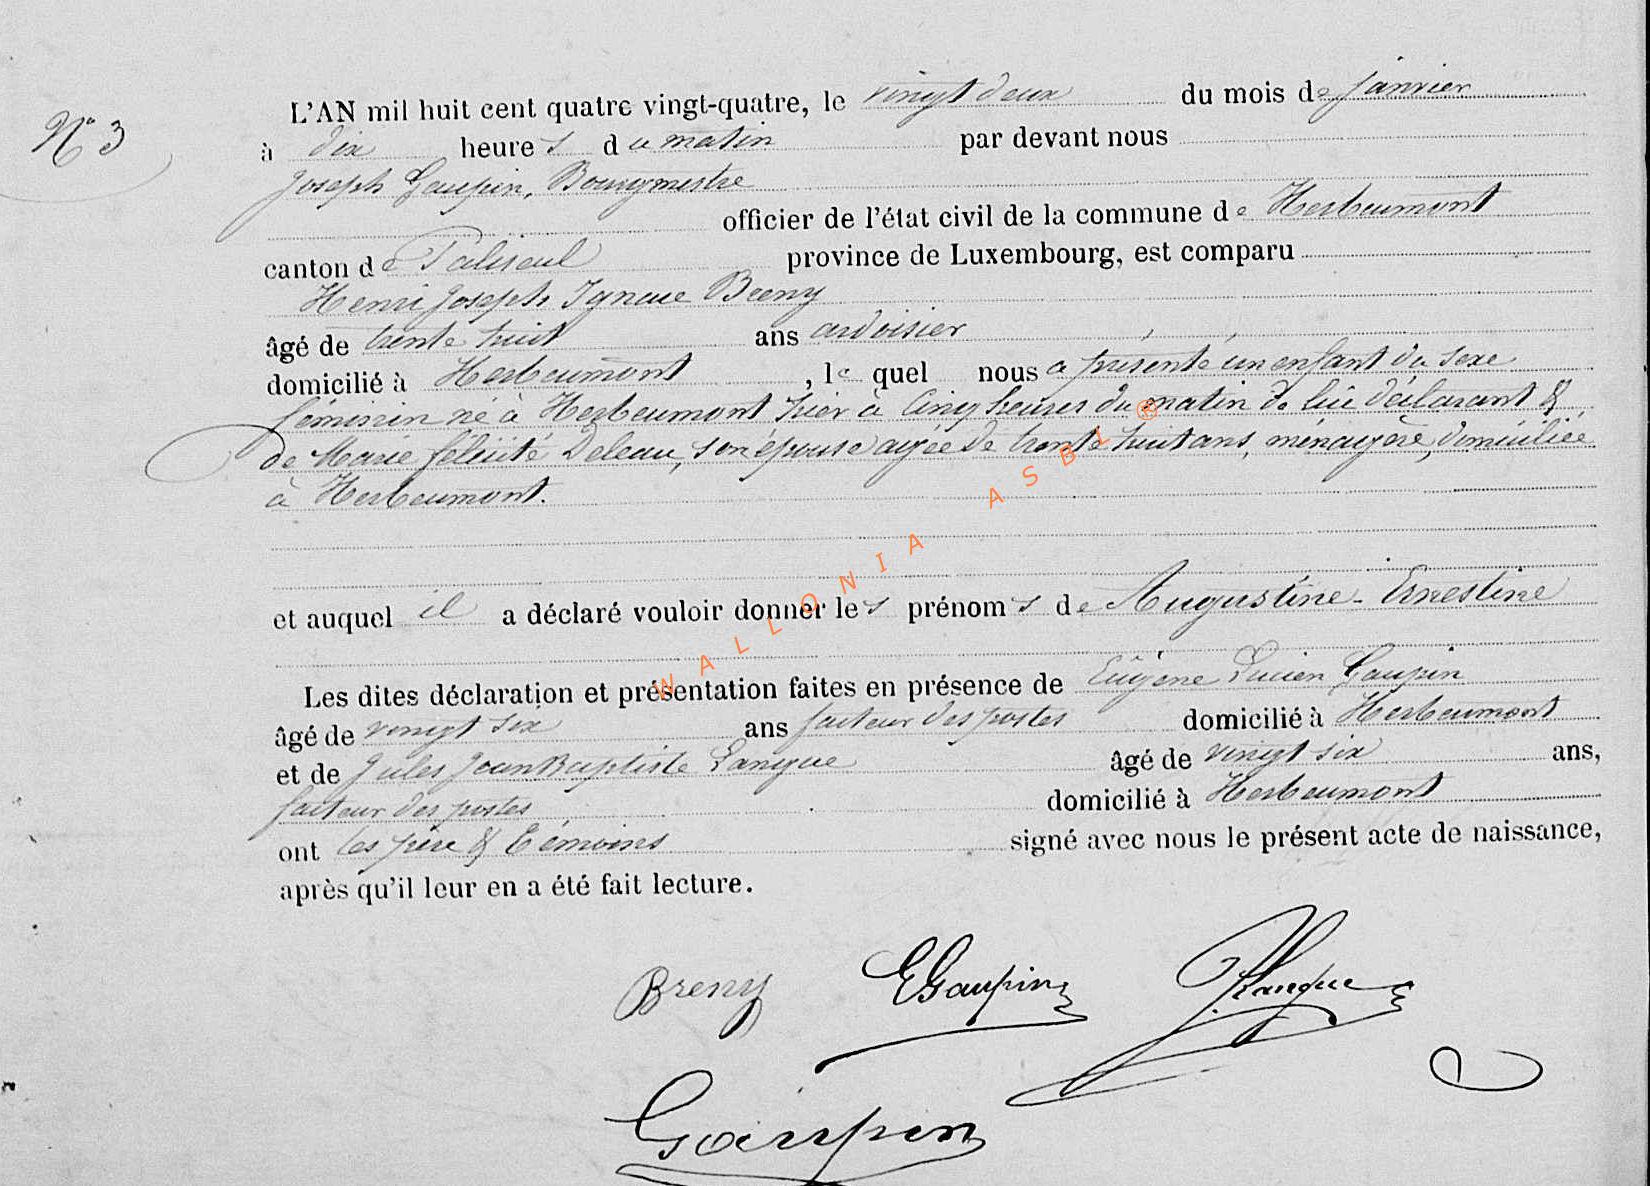 N° 3
L'AN mil huit cent quatre vingt-quatre, le vingt deux du mois de janvier
à dix heures du matin par devant nous
Joseph Gaupin, Bourgmestre
officier de l'état civil de la commune de Herbeumont
canton de Paliseul province de Luxembourg, est comparu
Henri Joseph Ignace Breny
âgé de trente huit ans ardoisier
domicilié à Herbeumont, lequel nous a présenté un enfant du sexe
féminin né à Herbeumont hier à cinq heures du matin de lui déclarant &
de Marie félicité Deleau, son épouse agée de trente huit ans, ménagère, domiciliée
à Herbeumont.
et auquel il a déclaré vouloir donner les prénoms de Augustine-Ernestine
Les dites déclaration et présentation faites en présence de Eugène Lucien Gaupin
âgé de vingt six ans facteur des postes domicilié à Herbeumont
et de Jules Jean Baptiste Langue âgé de vingt six ans,
facteur des postes domicilié à Herbeumont
ont les père & témoins signé avec nous le présent acte de naissance,
après qu'il leur en a été fait lecture.
Breny EGaupin JLangue
Gaupin
WALLONIA ASBL ®